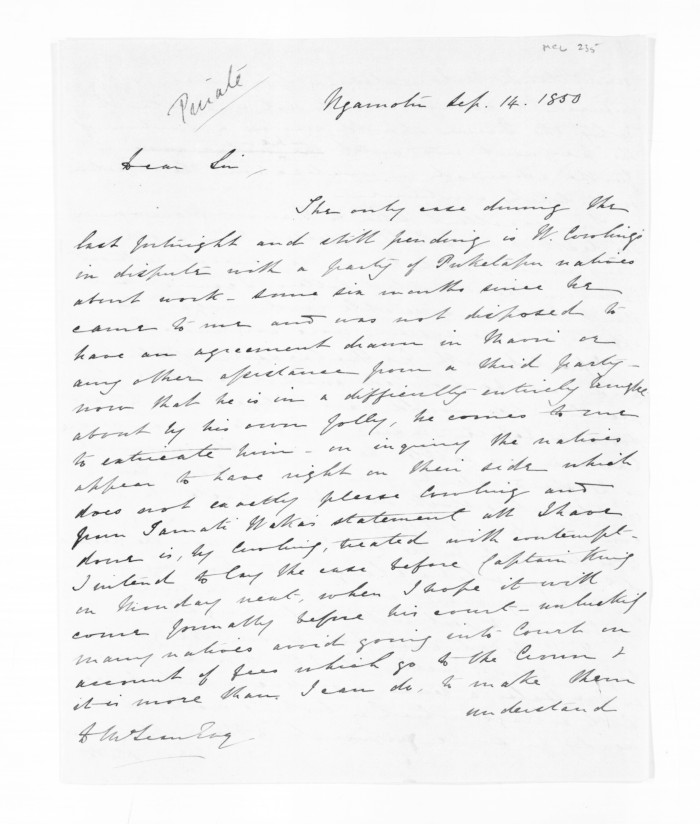 MCL 235
Private
Ngamotu Sep. 14. 1850
Dear Sir,
The only case during the
last fortnight and still pending is W. Cowling's
in dispute with a party of Puketapu natives
about work - some six months since he
came to me and was not disposed to
have an agreement drawn in Maori or
any other assistance from a third party -
now that he is in a difficulty entirely brought
about by his own folly, he comes to me
to extricate him - on inquiry the natives
appear to have right on their side which
does not exactly please Cowling and
from Tamati Waka's statement all I have
done is, by Cowling, treated with contempt -
I intend to lay the case before Captain King
on Monday next, when I hope it will
come formally before his court - unluckily
many natives avoid going into Court on
account of fees which go to the Crown &
it is more than I can do, to make them
understand
D McLean Esq